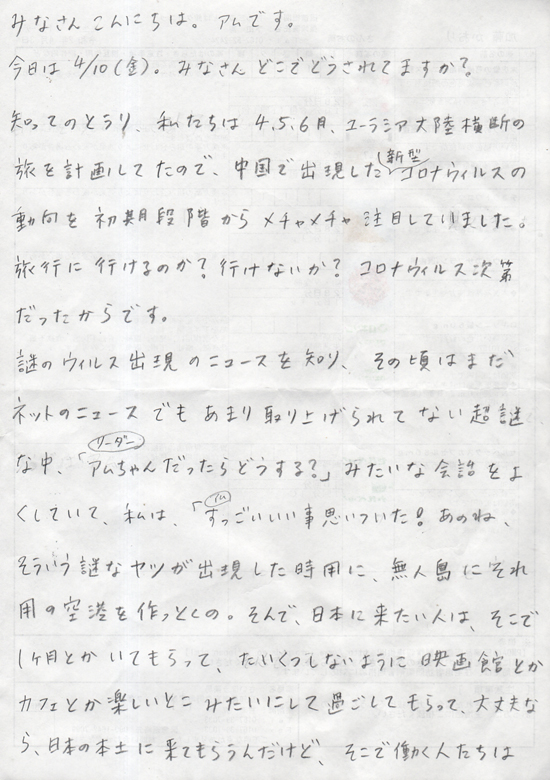 みなさん こんにちは。アムです。
今日は 4/10(金)。みなさん どこでどうされてますか?
知ってのとうり、私たちは 4.5.6月、ユーラシア大陸横断の
旅を計画してたので、中国で出現した(新型)コロナウィルスの
動向を 初期段階から メチャメチャ 注目していました。
旅行に 行けるのか?行けないか? コロナウィルス次第
だったからです。
謎のウィルス出現のニュースを知り、その頃はまだ
ネットのニュースでも あまり取り上げられてない超謎
リーダー
な中、「アムちゃんだったらどうする?」みたいな会話をよ
アム
くしていて、私は、「すっごいいい事思いついた!あのね、
そういう謎なヤツが出現した時用に、無人島にそれ
用の空港を作っとくの。そんで、日本に来たい人は、そこで
1ヶ月とか いてもらって、たいくつしないように 映画館とか
カフェとか楽しいとこ みたいにして過ごしてもらって、大丈夫な
ら、日本の本土に来てもらうんだけど、そこで働く人たちは